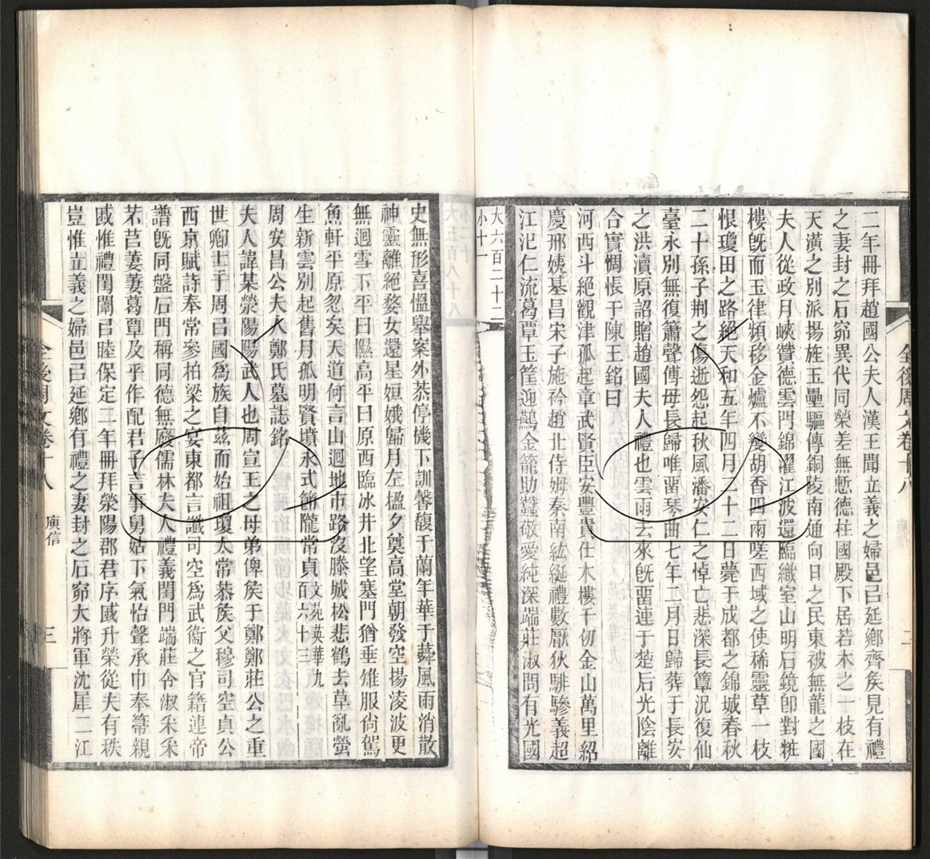 二年冊拜趙國公夫人漢王聞立義之婦邑已延鄉齊矦見有禮
之妻封之石窌異代同榮差無慙德柱國殿下居若木之一枝在
天潢之別派揚旌玉壘驅傳銅陵南通向日之民東被無龍之國
夫人從政月峽贊德雲門錦濯江波還臨織室山明石鏡卽對粧
樓旣而玉律頻移金爐不變胡香四兩嗟西域之使稀靈草一枝
恨瓊田之路絕天和五年四月二十二日薨于成都之錦城春秋
二十孫子荆之傷逝怨起秋風潘安仁之悼亡悲深長簟況復仙
臺永別無復簫聲傅母長歸唯畱琴曲七年二月日歸葬于長安
之洪瀆原詔贈趙國夫人禮也雲雨去來旣畱連于楚后光陰離
合實惆悵于陳王銘曰
河西斗絕觀津孤起章武賢臣安豐貴仕木樓千仞金山萬里紹
慶邢姨基昌宋子施衿趙北侍姆秦南紘綖禮數厭狄騑驂義超
江汜仁流葛覃玉筐迎鷰金籠助蠶敬愛純深端莊淑問有光國
大六百二十二
小十一
全後周文卷十八
二
史無形喜慍舉案外恭停機下訓馨馥千蘭年華于蕣風雨消散
神靈離絕婺女還星姮娥歸月左楹夕奠高堂朝發空揚淩波更
無迴雪下平曰隰高平曰原西臨冰井北望塞門猶垂雉服尙駕
魚軒平原忽矣天道何言山迴地市路沒滕城松悲鶴去草亂螢
生新雲別起舊月孤明賢墳永式節隴常貞文苑英華九百六十三
周安昌公夫人鄭氏墓誌銘
夫人諱某滎陽陽武人也周宣王之母弟俾矦于鄭鄭莊公之重
世卿士于周已國爲族自兹而始祖瓊太常恭矦父穆司空貞公
西京賦詩奉常參柏梁之宴東都言讖司空爲武衞之官籍連帝
譜旣同盤石門稱同德無廢儒林夫人禮義閨門端莊令淑采采
芣苢萋萋葛覃及乎作配君子言事舅姑下氣怡聲承巾奉箒親
戚惟禮閨閫已睦保定二年冊拜滎陽郡君序戚升榮從夫有秩
豈惟立義之婦邑已延鄉有禮之妻封之石窌大將軍沈犀二江
全後周文卷十八
庾信
三